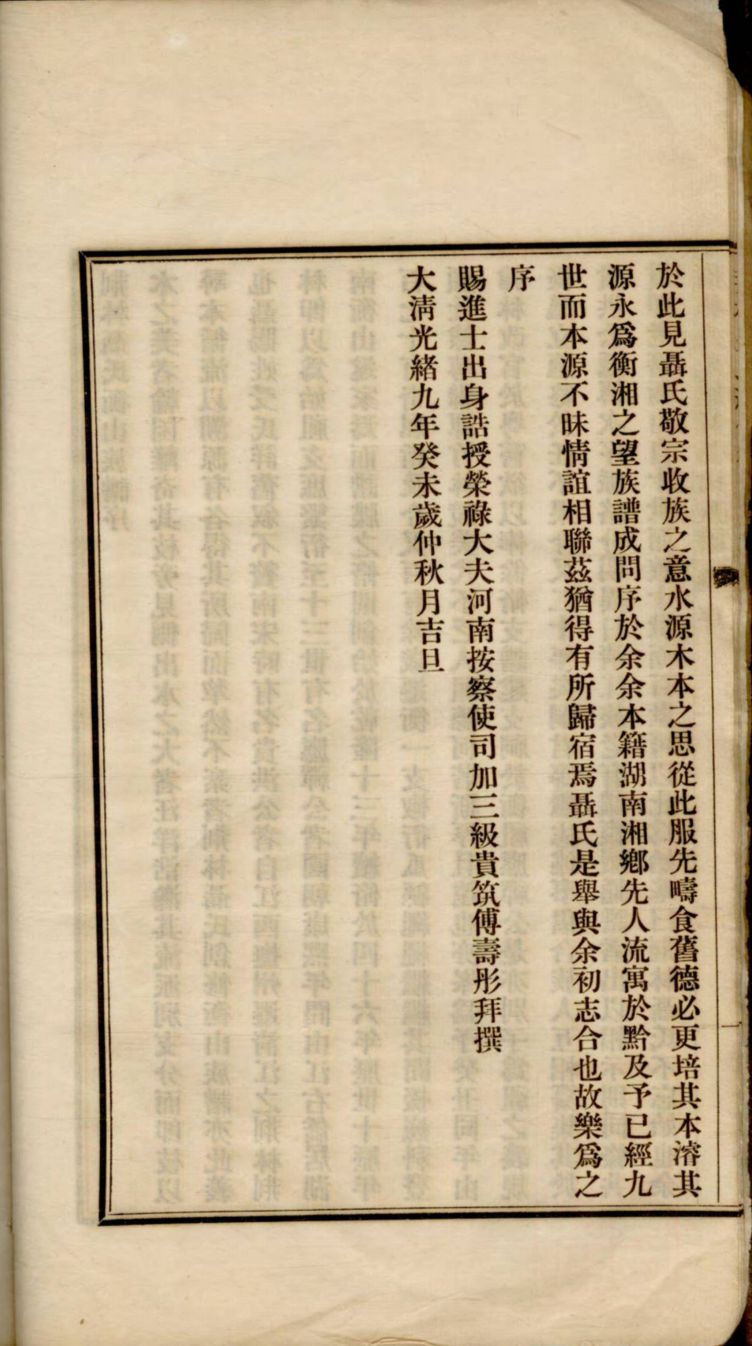 於此見聶氏敬宗收族之意水源木本之思從此服先疇食舊德必更培其本濬其
源永爲衡湘之望族譜成問序於余余本籍湖南湘鄉先人流寓於黔及予已經九
世而本源不昧情誼相聯茲猶得有所歸宿焉聶氏是舉與余初志合也故樂爲之
序
賜進士出身誥授榮祿大夫河南按察使司加三級貴筑傅壽彤拜撰
大清光緒九年癸未歲仲秋月吉旦